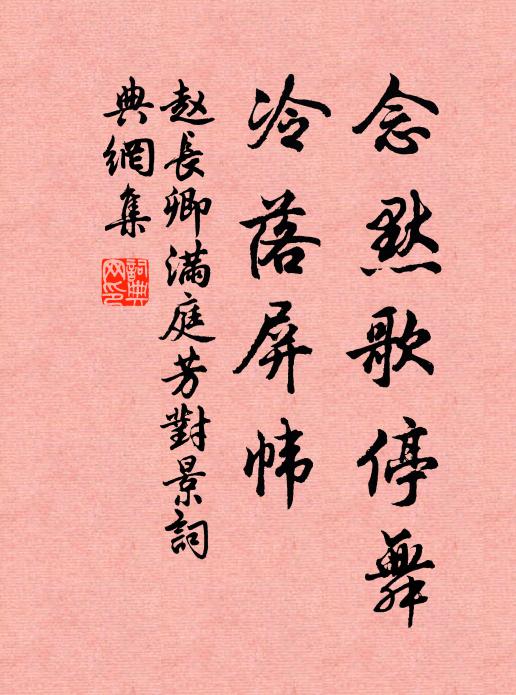 念黙歌停舞
冷落屏帏
赵長卿滿庭芳對景詞
典網集
詞典
网印